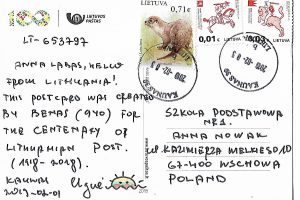 100 LIETUVOS
PAŠTAS
LT-653797
ANNA LABAS, HELLO
FROM LITHUANIA!
THIS POSTCARD WAS CREATED
BY BENAS (9YO) FOR
THE CENTENARY OF
LITHUANIAN POST.
(1918-2018).
KAUNAS
2019-02-01
LIETUVA 0,71€
0,01€
0,03€
KAUNAS
SZKOLA PODSTAWOWA
NR1
ANNA NOWAK
ul. KAZIMIERZA WIELKIEGO 10
67-400 WSCHOWA
POLAND